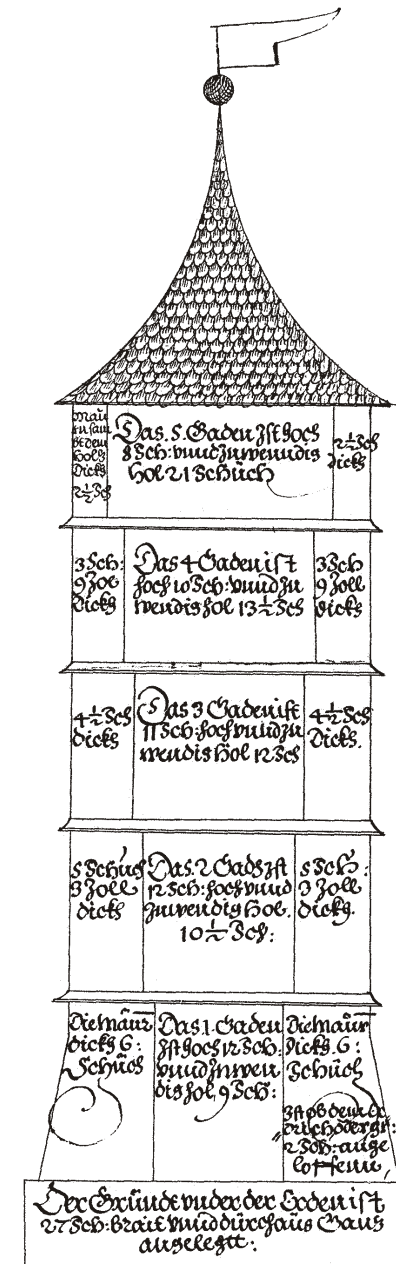 Maur
sambt dem
Holtz
Dicks
2½ Sch
Das. 5. Gaden Ist hoch
8 Sch: vnnd Inwenndig
hol 21 Schüch
2½ Sch
dicks
3 Sch:
9 Zol
Dicks
Das 4 Gaden ist
hoch 10 Sch: vnnd In
wendig hol 13½ Sch
3 Sch
9 Zoll
dicks
4½ Sch
dicks
Das 3 Gaden ist
11 Sch: hoch vnnd In
wendig hol 12 Sch
4½ Sch
Dicks.
5 Schuch
3 Zoll
dicks
Das. 2 Gads Ist
12 Sch: hoch vnnd
Inwendig hol.
10½ Sch:
5 Sch:
3 Zoll
dicks.
Die Maür
dicks 6:
Schüch
Das. 1. Gaden
Ist hoch 12 Sch:
vnnd Inwen
dig hol 9 Sch:
Die Maür
dicks. 6:
Schüch
Ist ob dem
2 Sch: ange
loffenn
Der Gründt vnder der Erden ist
27 Sch: brait vnnd dürchaus Gantz
angelegtt: